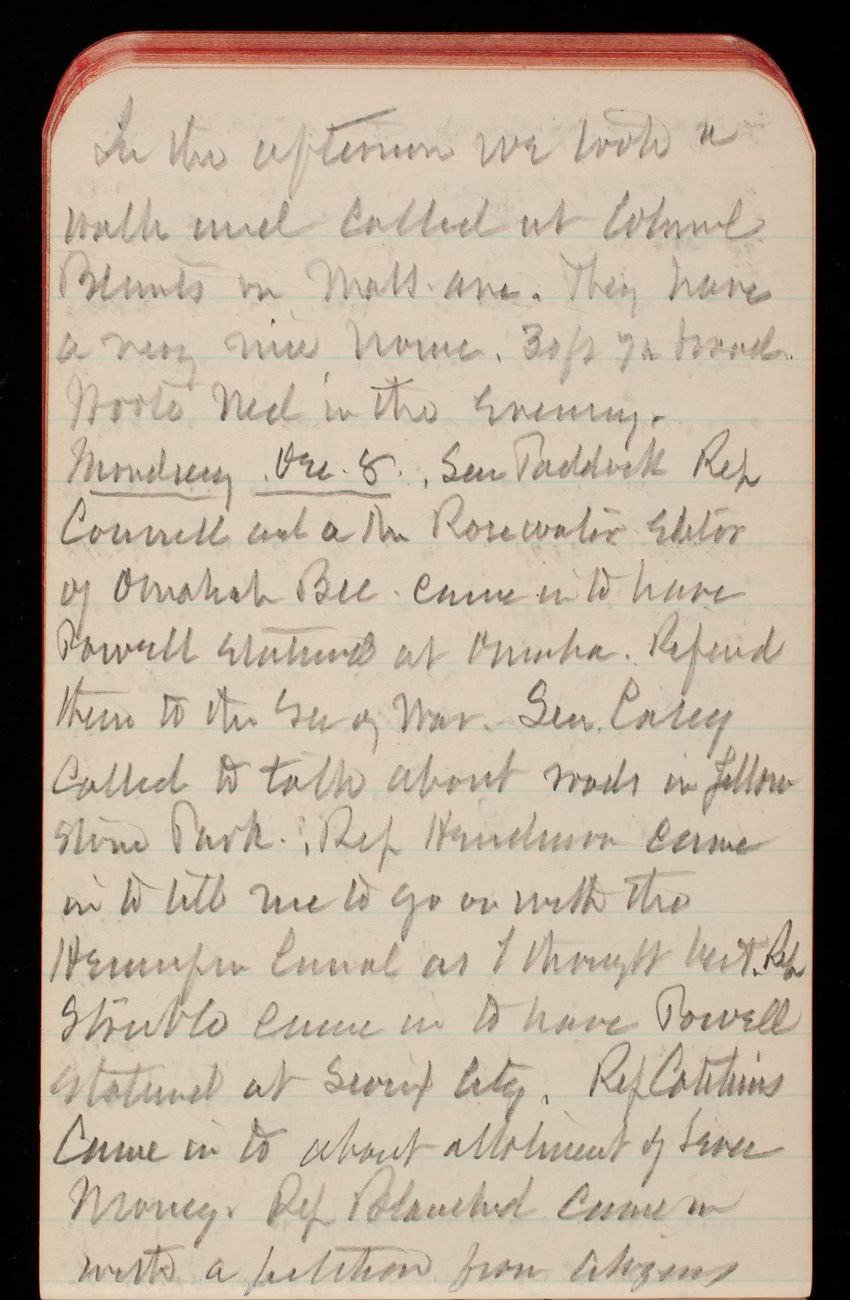 In the afternoon we took a
walk and called at Colonel
Blunts on Mass. ave. They have
a very nice home. 30 ft
Wrote Ned in the evening.
Monday Dec. 8. Sen Paddock Rep
Connell and a Mr Rosewater Editor
of Omahah Bee. came in to have
Powell stationed at Omaha. Refered
them to the Sec of War. Sen. Casey
Called to talk about roads in Yellow
stone Park. Rep Henderson came
in to tell me to go on with the
Hennepin Canal as I thought best. Rep
Struble came in to have Powell
stationed at Sioux City. Rep Catchins
Came in to about allotment of
Money. Rep Blanchard came in
with a petition from citizens